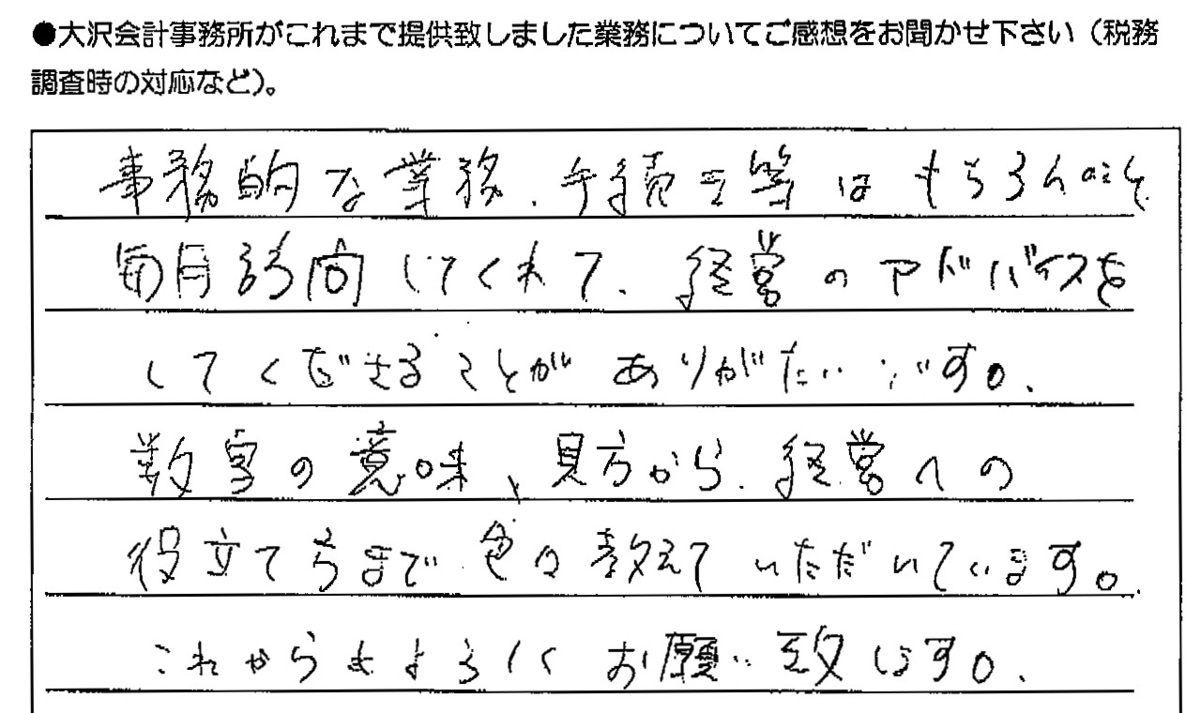 ●大沢会計事務所がこれまで提供致しました業務についてご感想をお聞かせ下さい（税務
調査時の対応など）。
事務的な業務、手続き等はもちろんのこと
毎月訪問してくれて、経営のアドバイスを
してくださることがありがたいです。
数字の意味、見方から、経営への
役立て方まで色々教えていただいています。
これからもよろしくお願い致します。